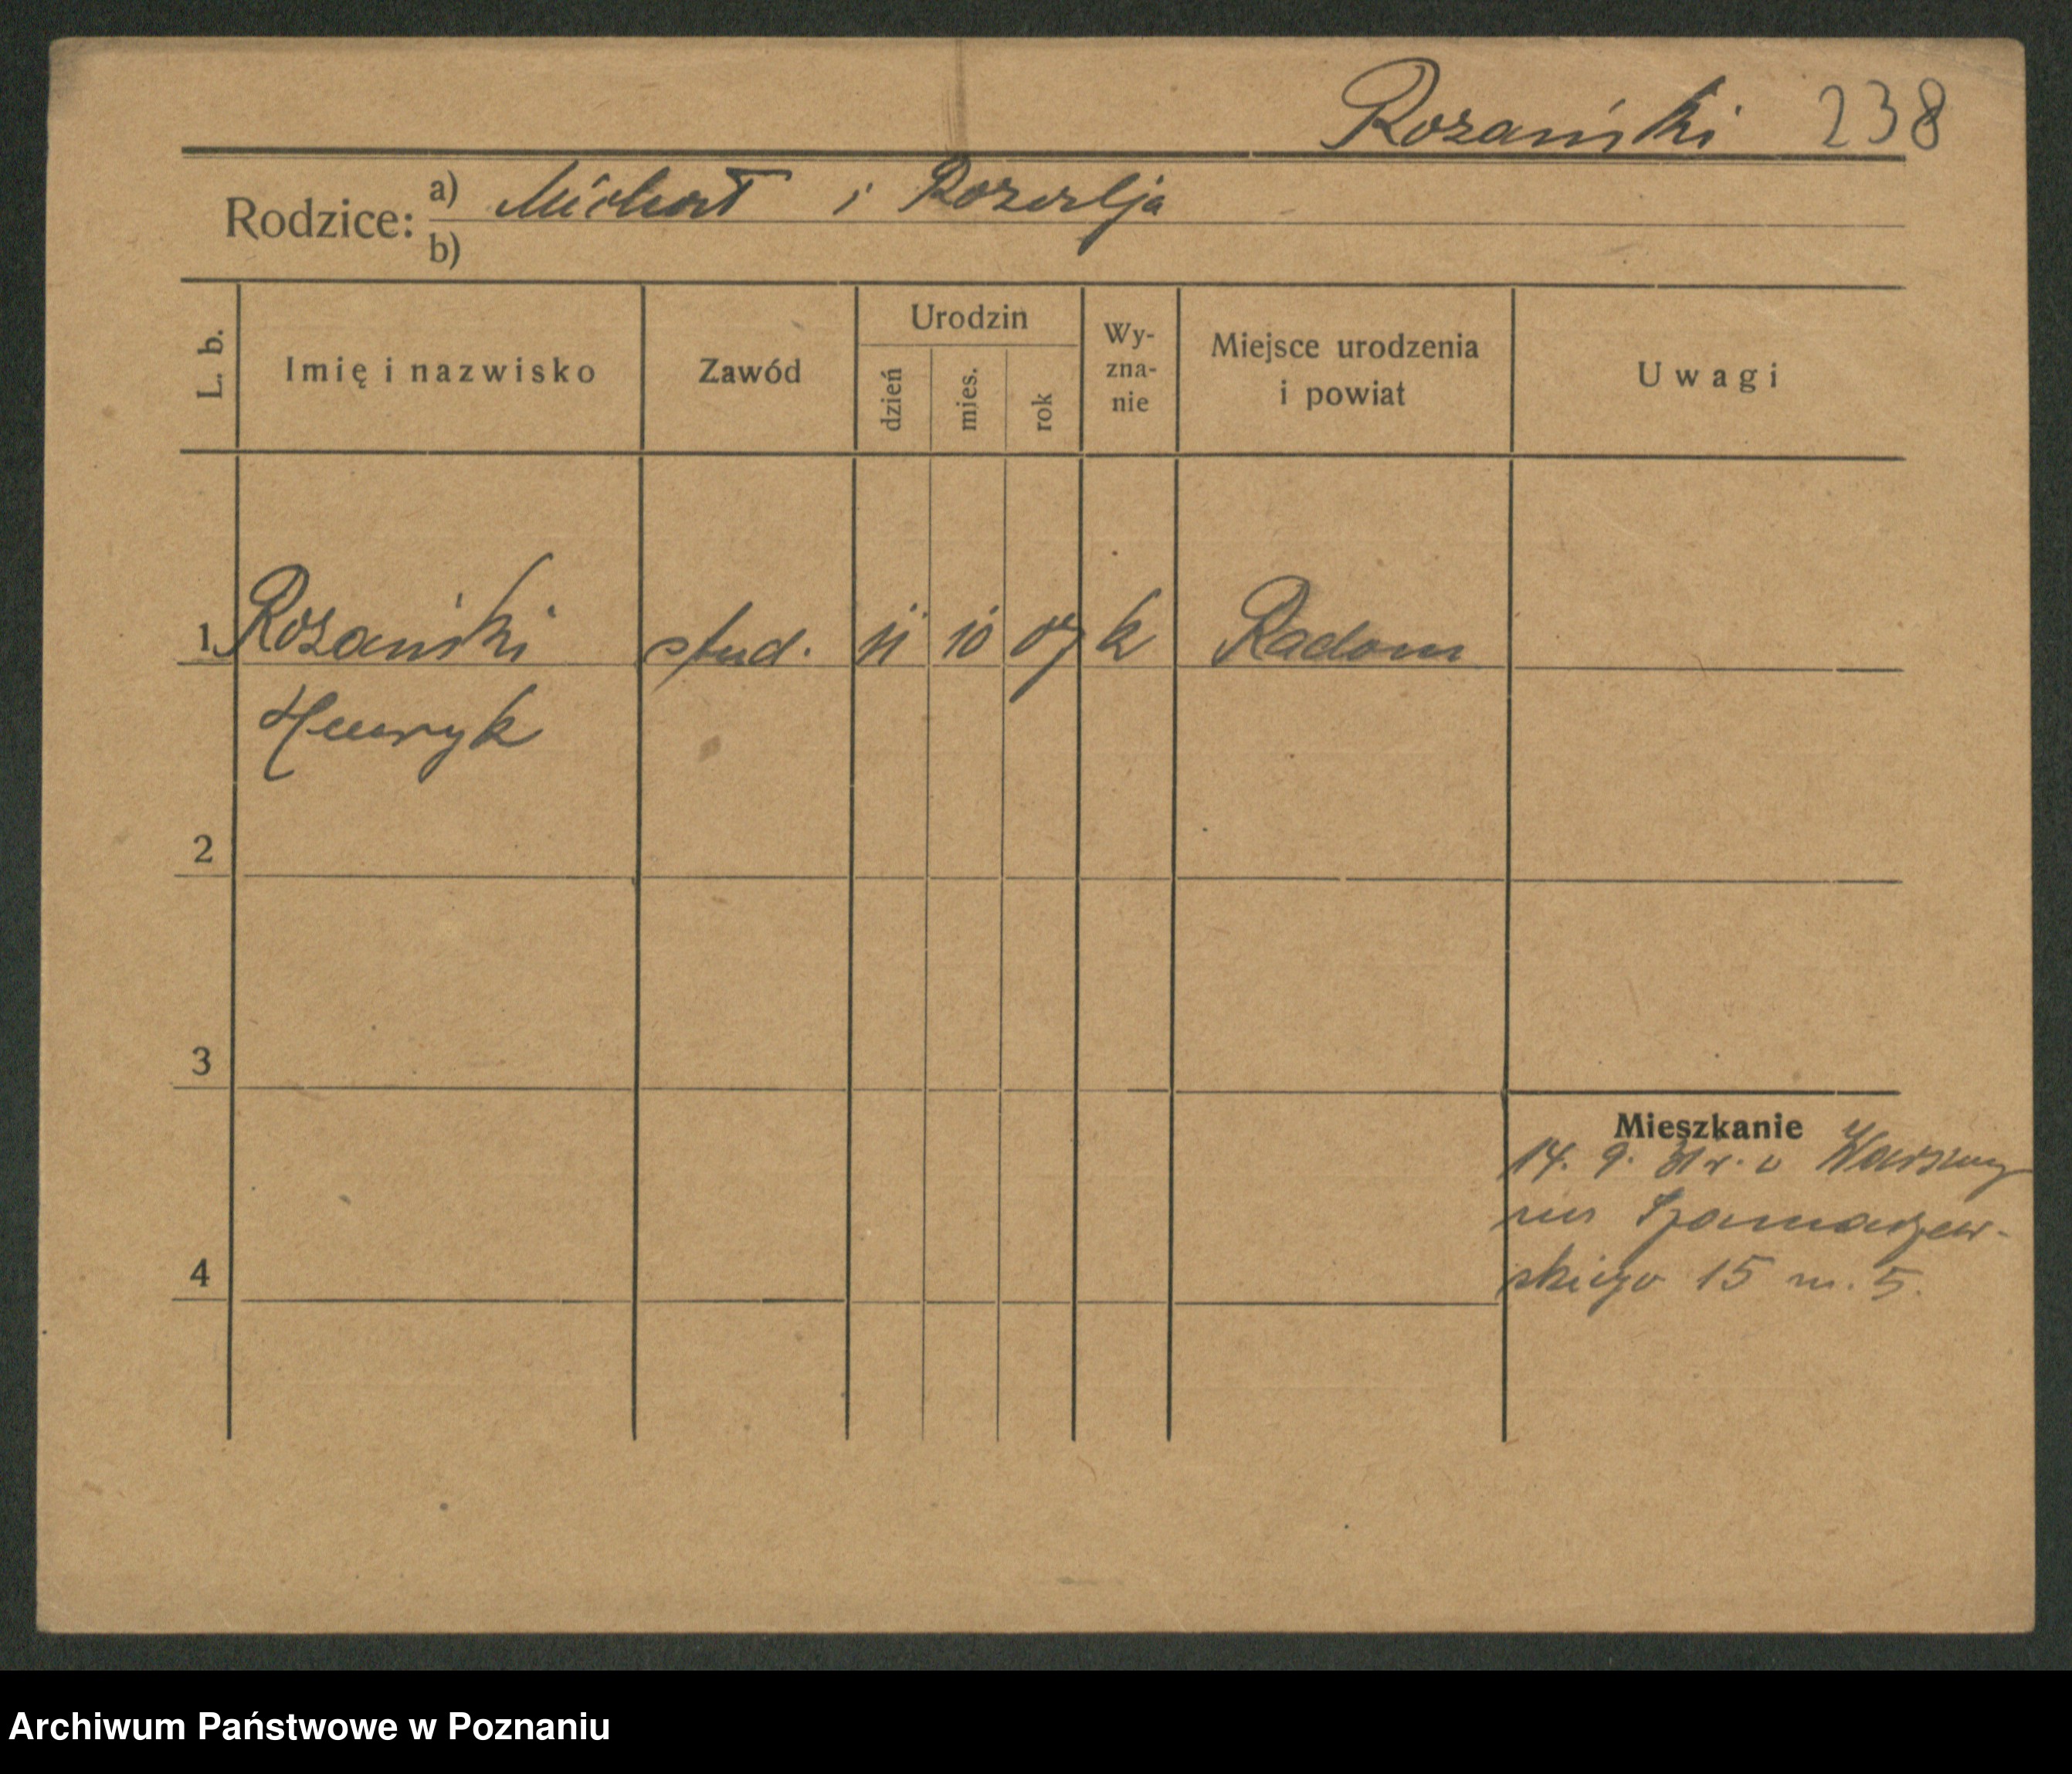 Rozański 238
Rodzice: a) Michał i Rozalja
b)
L. b.
Imię i nazwisko
Zawód
Urodzin
dzień
mies.
rok
Wy-
zna-
nie
Miejsce urodzenia
i powiat
Uwagi
1. Rozański stud. 11 10 07 k Radom
Henryk
2
3
Mieszkanie
14. 9. 31 r. z Warszawy
Szamarzew-
skiego 15 m. 5.
4
Archiwum Państwowe w Poznaniu